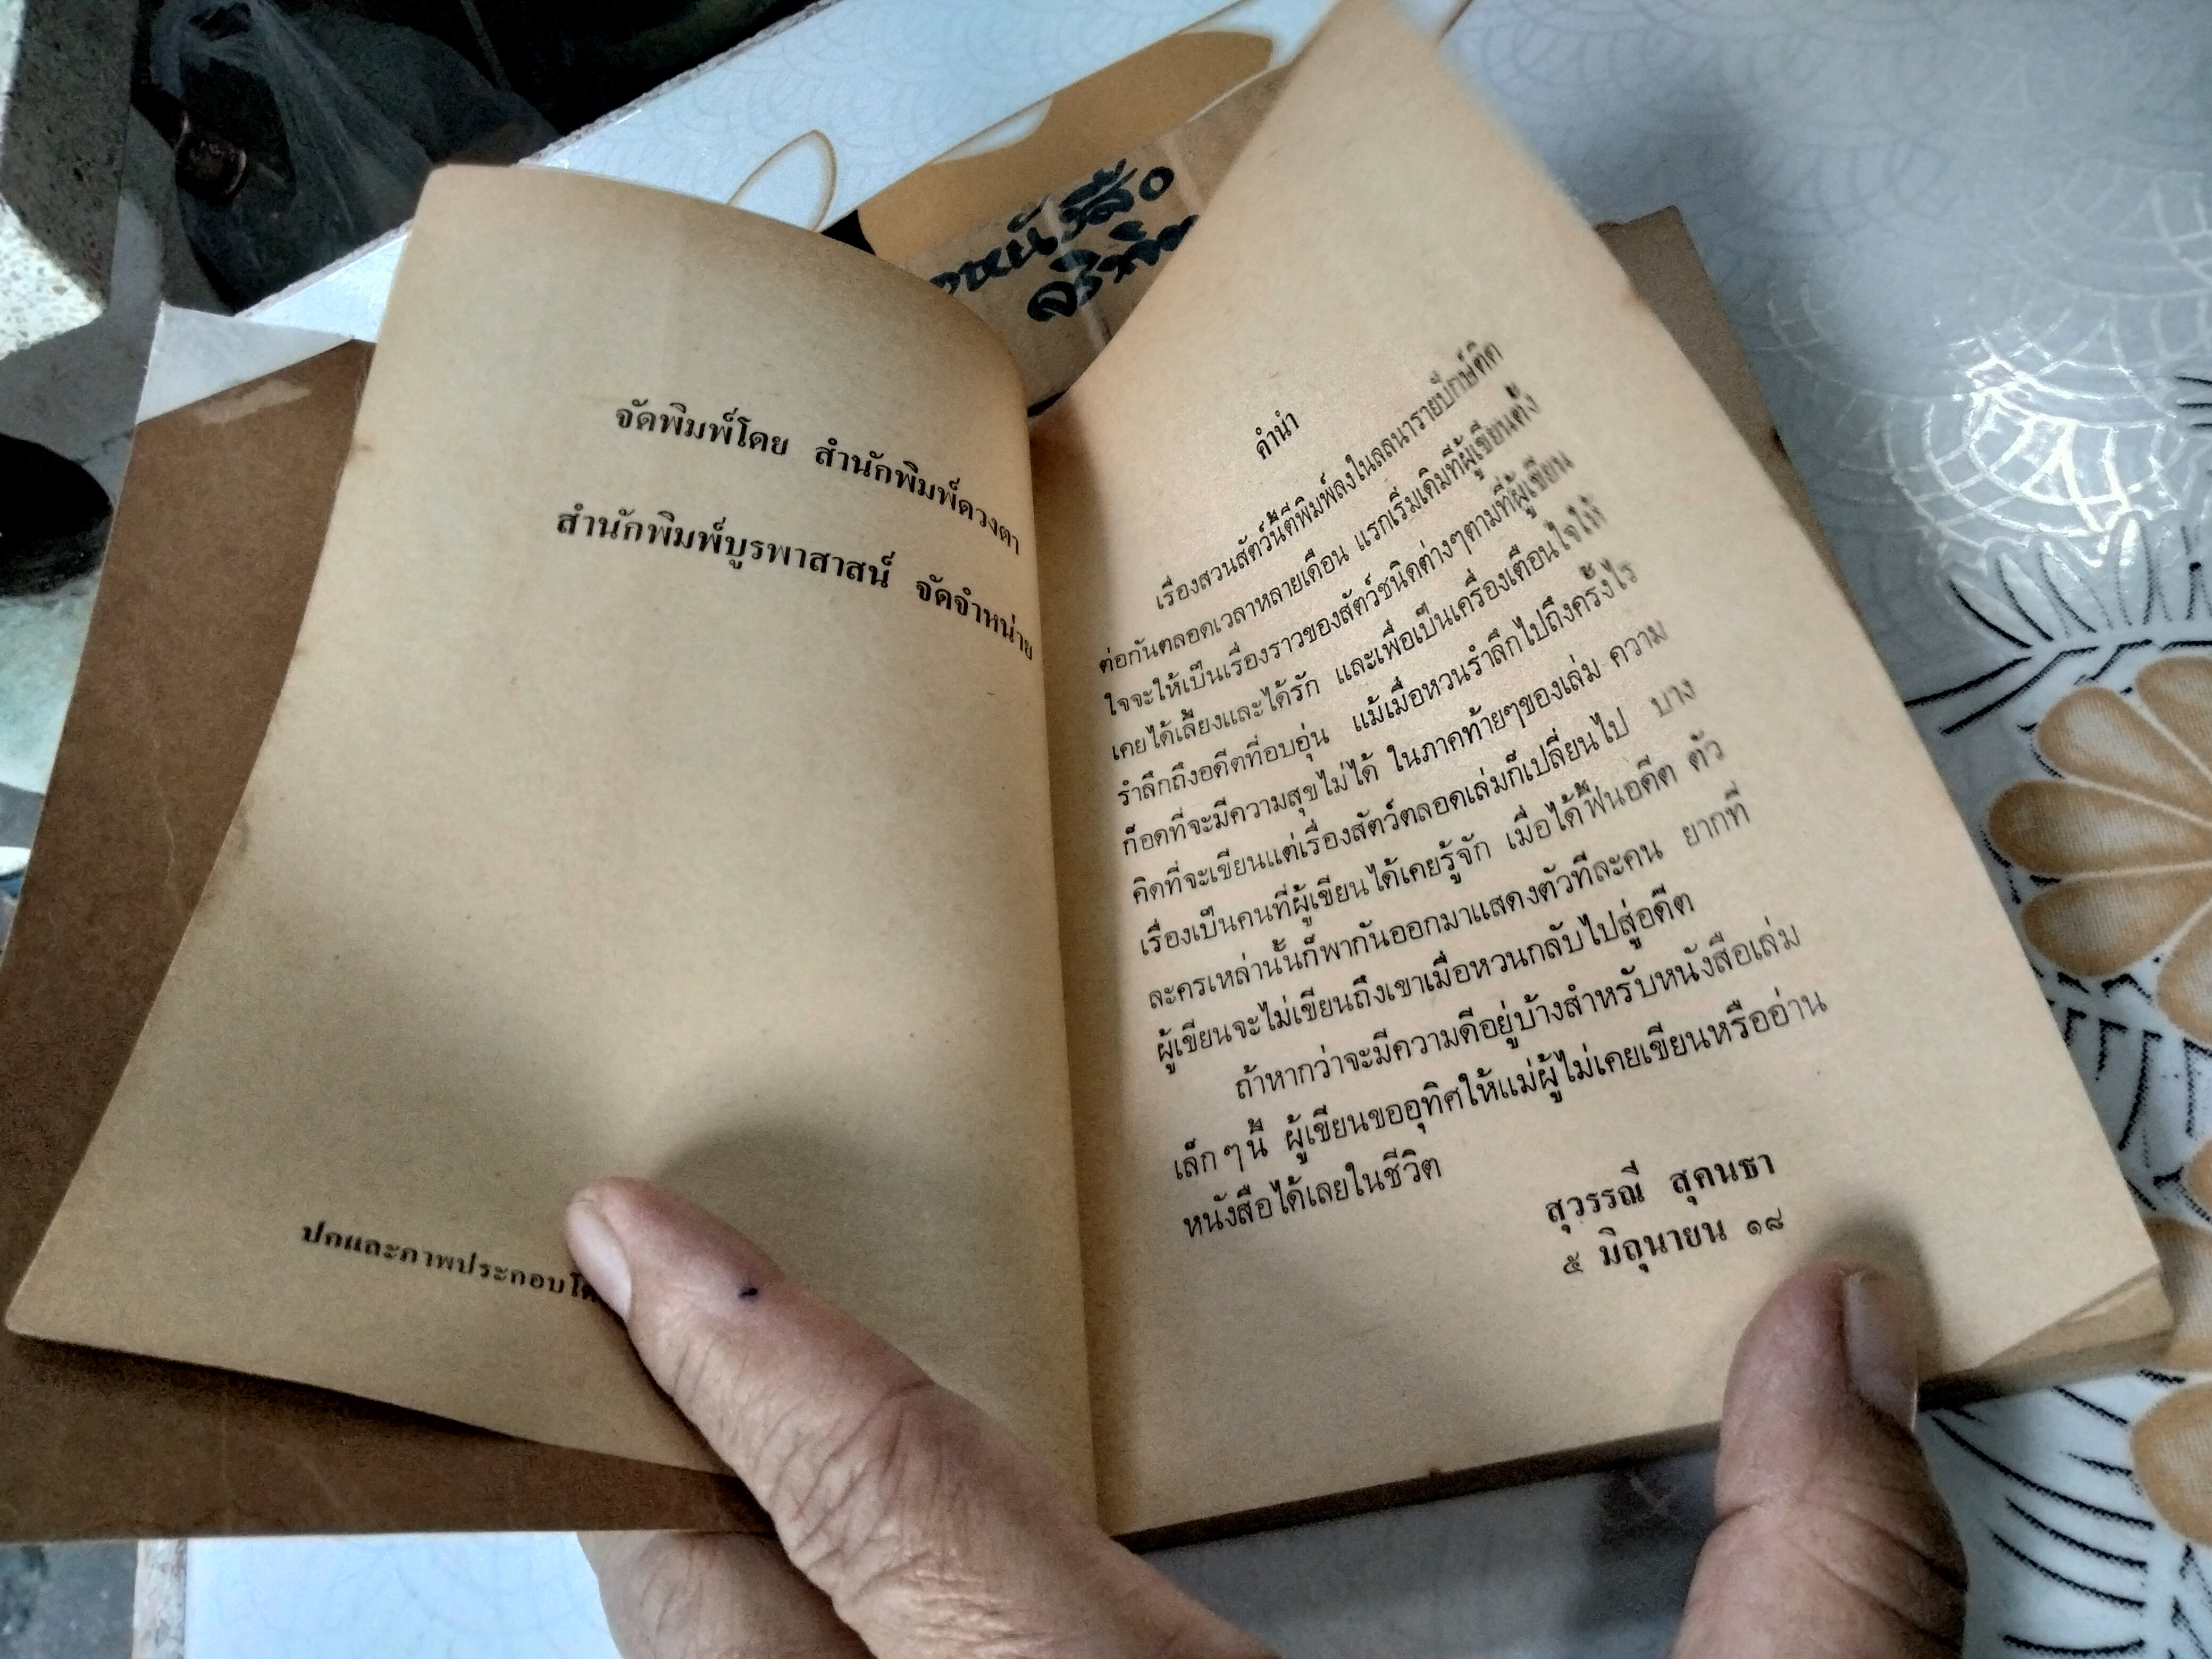 จัดพิมพ์โดย สำนักพิมพ์ดวงตา
สำนักพิมพ์บูรพาสาสน์ จัดจำหน่าย
ปกและภาพประกอบโดย
คำนำ
เรื่องสวนสัตว์นี้ตีพิมพ์ลงในลลนารายปักษ์ติด
ต่อกันตลอดเวลาหลายเดือน แรกเริ่มเดิมทีผู้เขียนตั้ง
ใจจะให้เป็นเรื่องราวของสัตว์ชนิดต่างๆตามที่ผู้เขียน
เคยได้เลี้ยงและได้รัก และเพื่อเป็นเครื่องเตือนใจให้
รำลึกถึงอดีตที่อบอุ่น แม้เมื่อหวนรำลึกไปถึงครั้งไร
ก็อดที่จะมีความสุขไม่ได้ ในภาคท้ายๆของเล่ม ความ
คิดที่จะเขียนแต่เรื่องสัตว์ตลอดเล่มก็เปลี่ยนไป บาง
เรื่องเป็นคนที่ผู้เขียนได้เคยรู้จัก เมื่อได้ฟื้นอดีต ตัว
ละครเหล่านั้นก็พากันออกมาแสดงตัวทีละคน ยากที่
ผู้เขียนจะไม่เขียนถึงเขาเมื่อหวนกลับไปสู่อดีต
ถ้าหากว่าจะมีความดีอยู่บ้างสำหรับหนังสือเล่ม
เล็กๆนี้ ผู้เขียนขออุทิศให้แม่ผู้ไม่เคยเขียนหรืออ่าน
หนังสือได้เลยในชีวิต
สุวรรณี สุคนธา
๕ มิถุนายน ๑๘